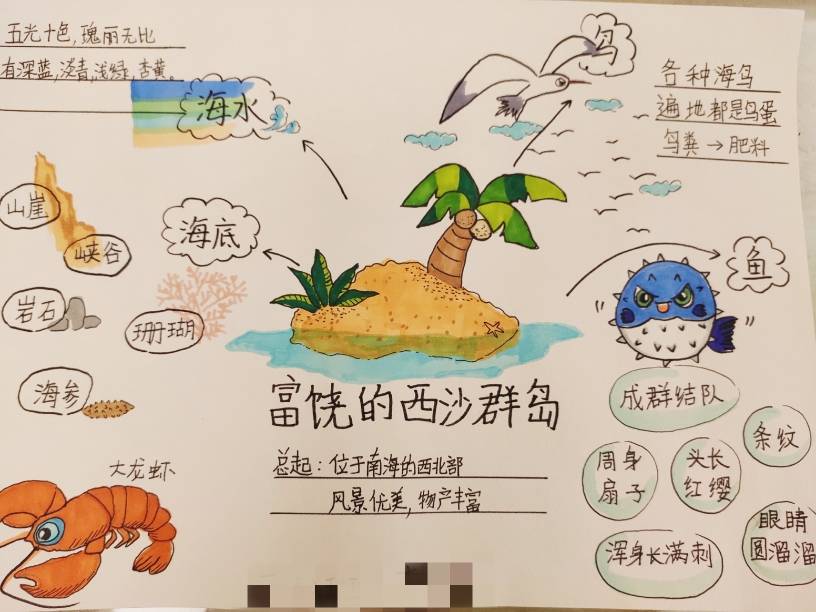 五光十色,瑰丽无比
有深蓝,淡青,浅绿,杏黄。
海水
鸟
各种海鸟
遍地都是鸟蛋
鸟粪→肥料
山崖
峡谷
海底
岩石
珊瑚
海参
大龙虾
鱼
富饶的西沙群岛
总起:位于南海的西北部
风景优美,物产丰富
成群结队
条纹
周身
扇子
头长
红缨
眼睛
圆溜溜
浑身长满刺